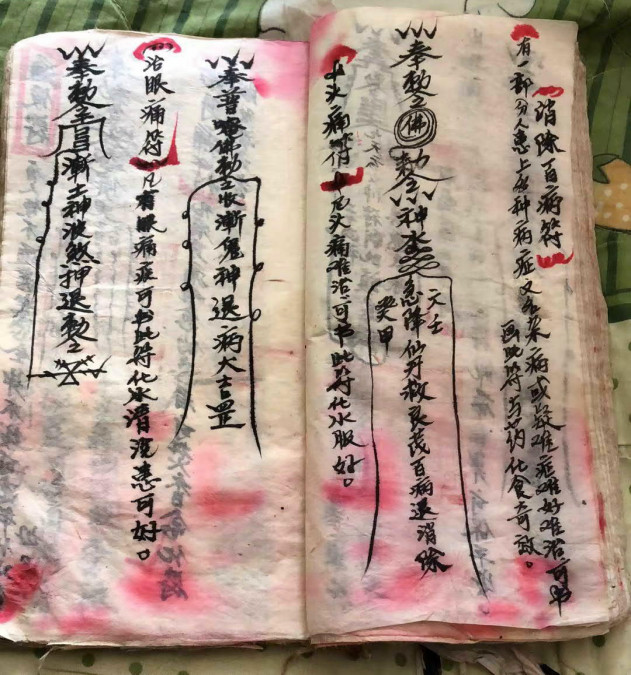 消除百病符
有一部分人患上各种病症又名杂病或疑难症难好难治可书
画此符与药化食奇效。
奉敕令佛敕令神水急降仙丹救良茂百病退消除
六壬
癸甲
头痛符
凡头痛难治可书此符化水服好。
奉普唵佛敕令收漸鬼神退病大吉罡
治眼痛符
凡有眼痛症可书此符化水清洗患可好。
奉敕令漸土神波煞押退敕令